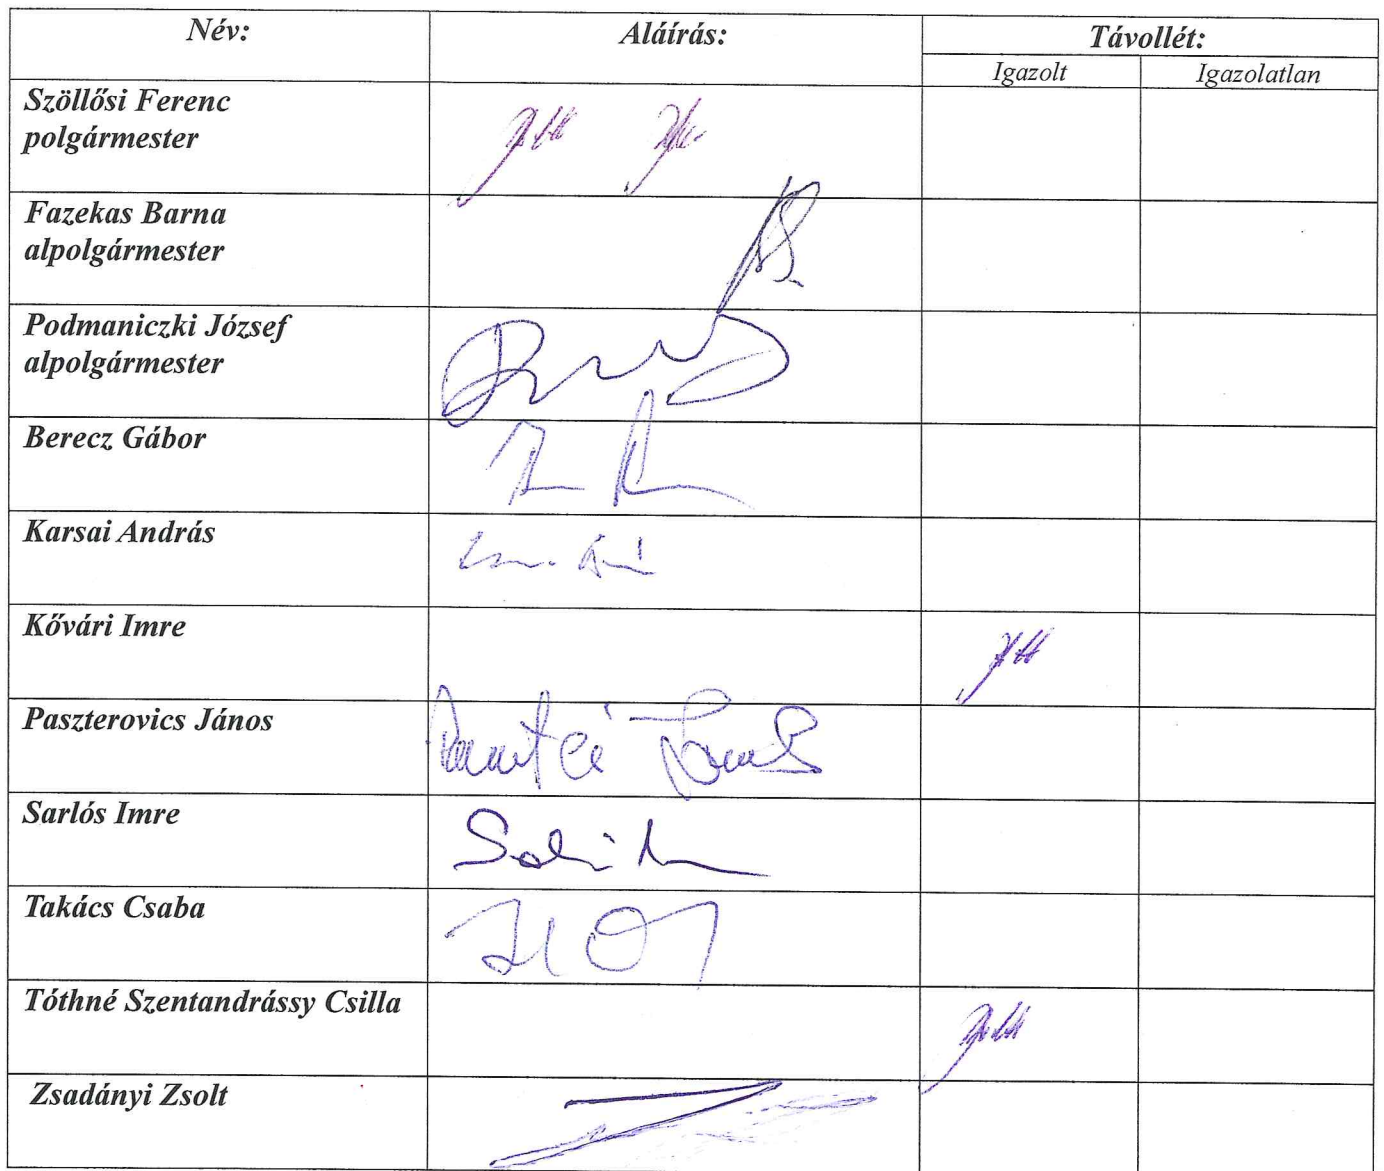 Név: Aláírás: Távollét:
Igazolt Igazolatlan
Szöllősi Ferenc
polgármester
Fazekas Barna
alpolgármester
Podmaniczki József
alpolgármester
Berecz Gábor
Karsai András
Kővári Imre
Paszterovics János
Sarlós Imre
Takács Csaba
Tóthné Szentandrássy Csilla
Zsadányi Zsolt